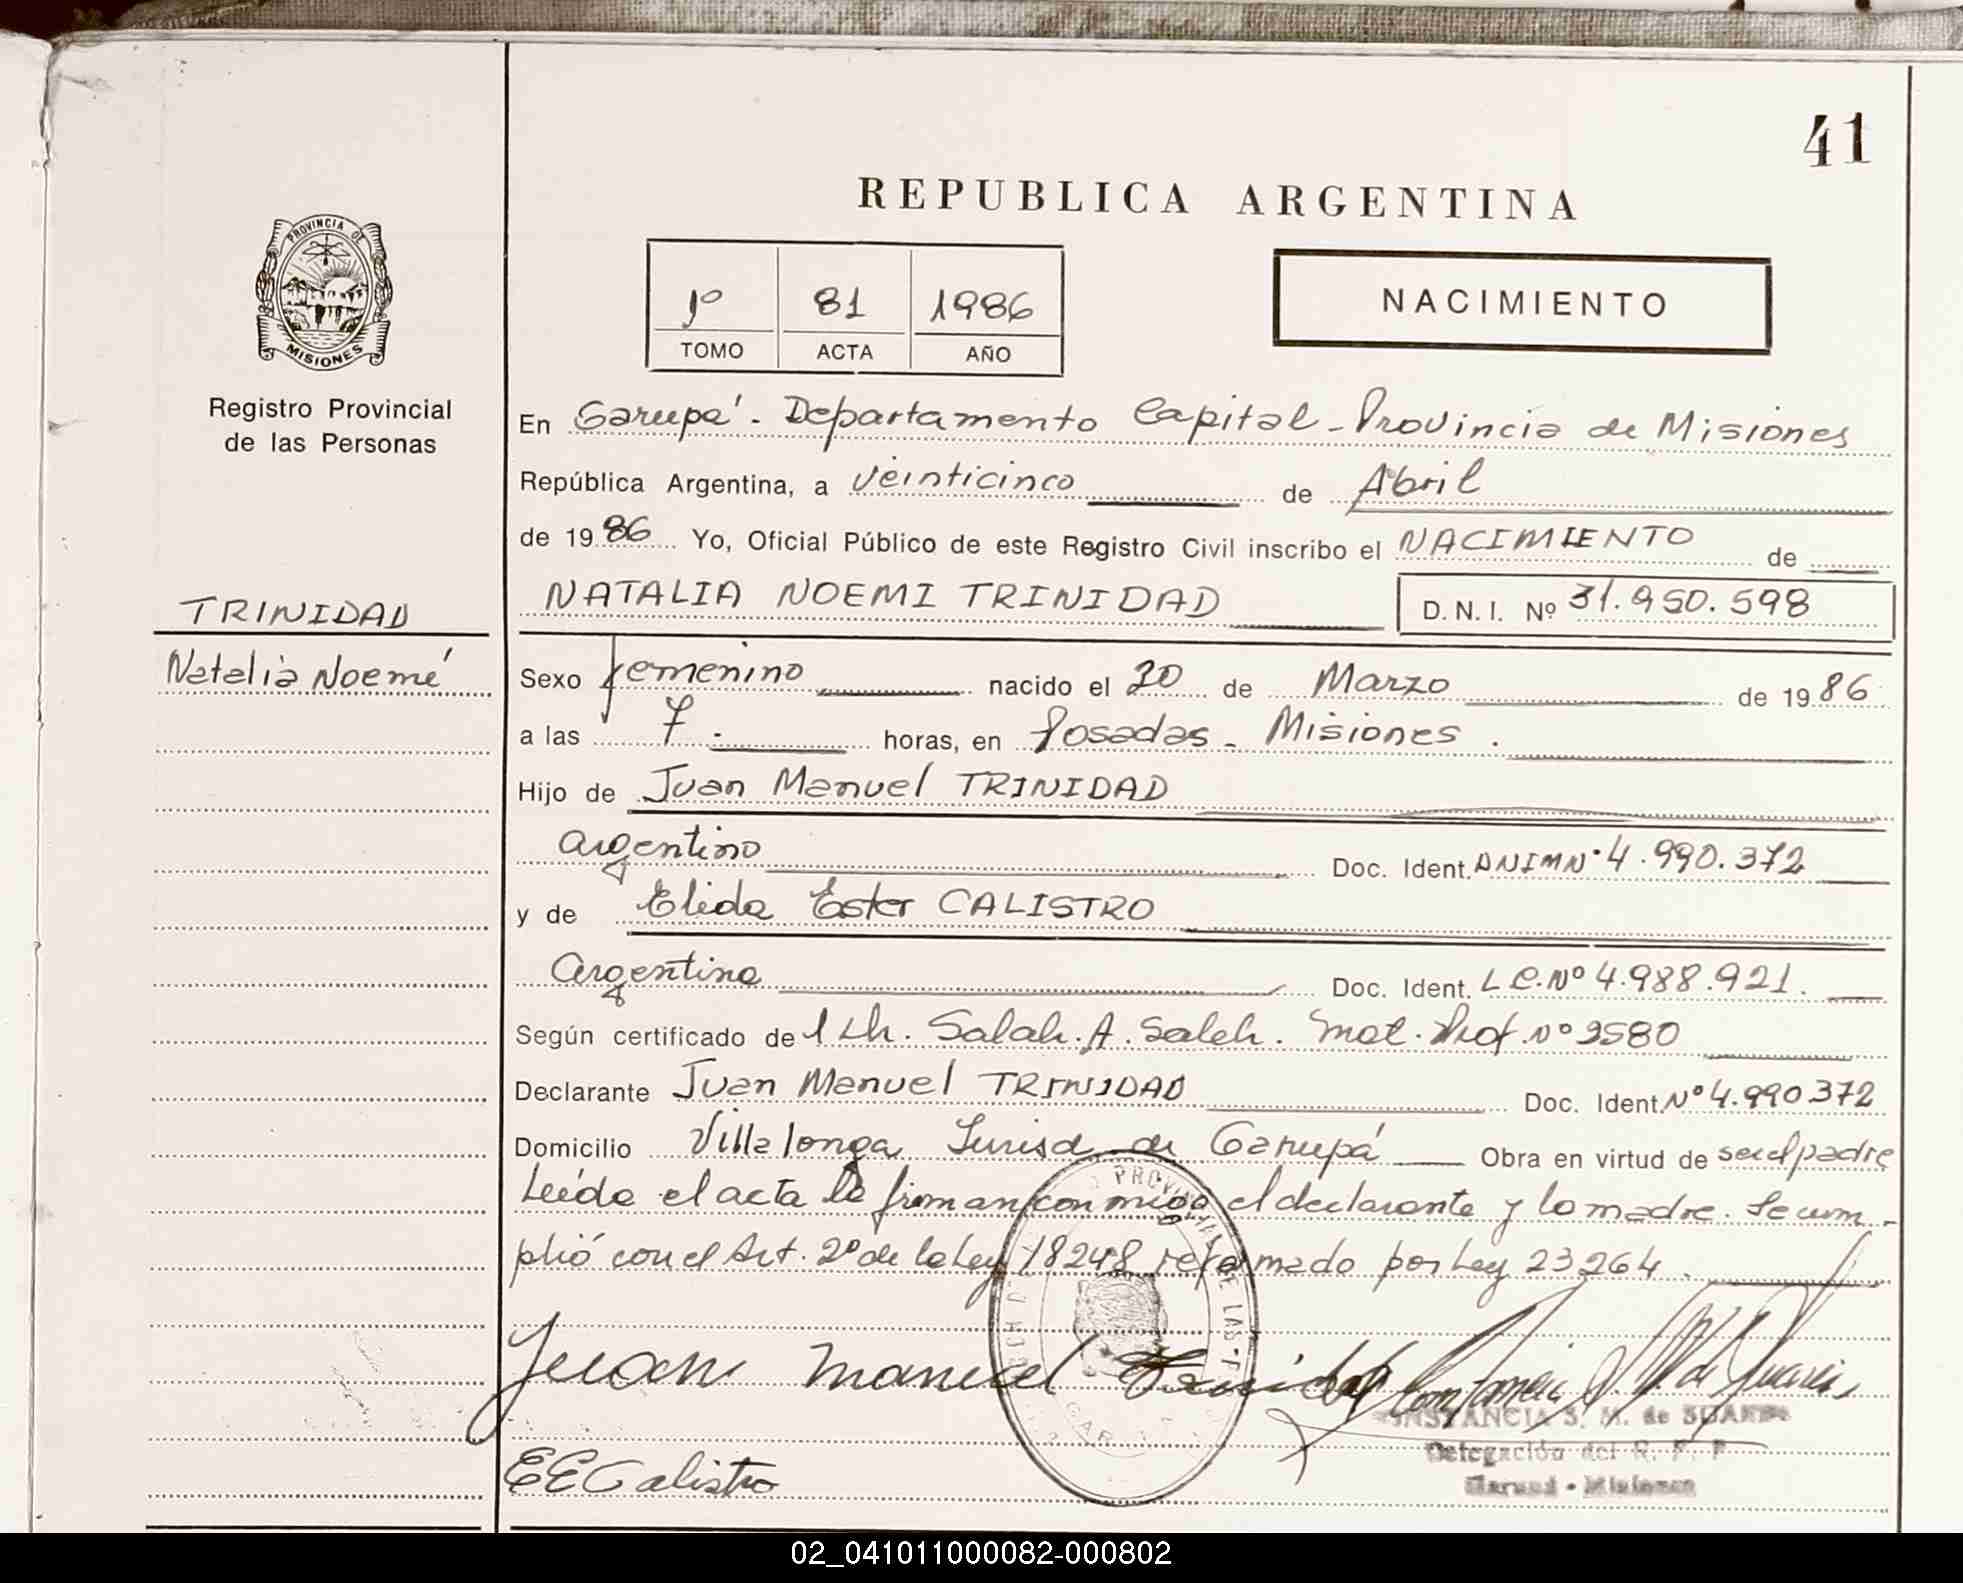 41
REPUBLICA ARGENTINA
PROVINCIA DE
MISIONES
Registro Provincial
de las Personas
1º 81 1986
TOMO ACTA AÑO
NACIMIENTO
En Garupá - Departamento Capital - Provincia de Misiones
República Argentina, a veinticinco de Abril
de 1986 Yo, Oficial Público de este Registro Civil inscribo el NACIMIENTO de
NATALIA NOEMI TRINIDAD D.N.I. Nº 31.950.598
TRINIDAD
Natalia Noemí
Sexo femenino nacido el 30 de Marzo de 1986
a las 7. horas, en Posadas - Misiones.
Hijo de Juan Manuel TRINIDAD
argentino Doc. Ident. DNIMNº 4.990.372
y de Elida Ester CALISTRO
argentina Doc. Ident. L C. Nº 4.988.921.
Según certificado de Salah. A. Saleh. Mat. Prof. Nº
Declarante Juan Manuel TRINIDAD Doc. Ident. Nº 4.990372
Domicilio Villalonga Jurisd. de Garupá Obra en virtud de ser el padre
Leída el acta la firman conmigo el declarante y la madre. Se cum-
plió con el Art. 2º de la Ley 18248 reformado por Ley 23264.
Juan Manuel Trinidad
S. M. de SUAREZ
Delegación del R. P. P
Garupá - Misiones
E E Calistro
02_041011000082-000802